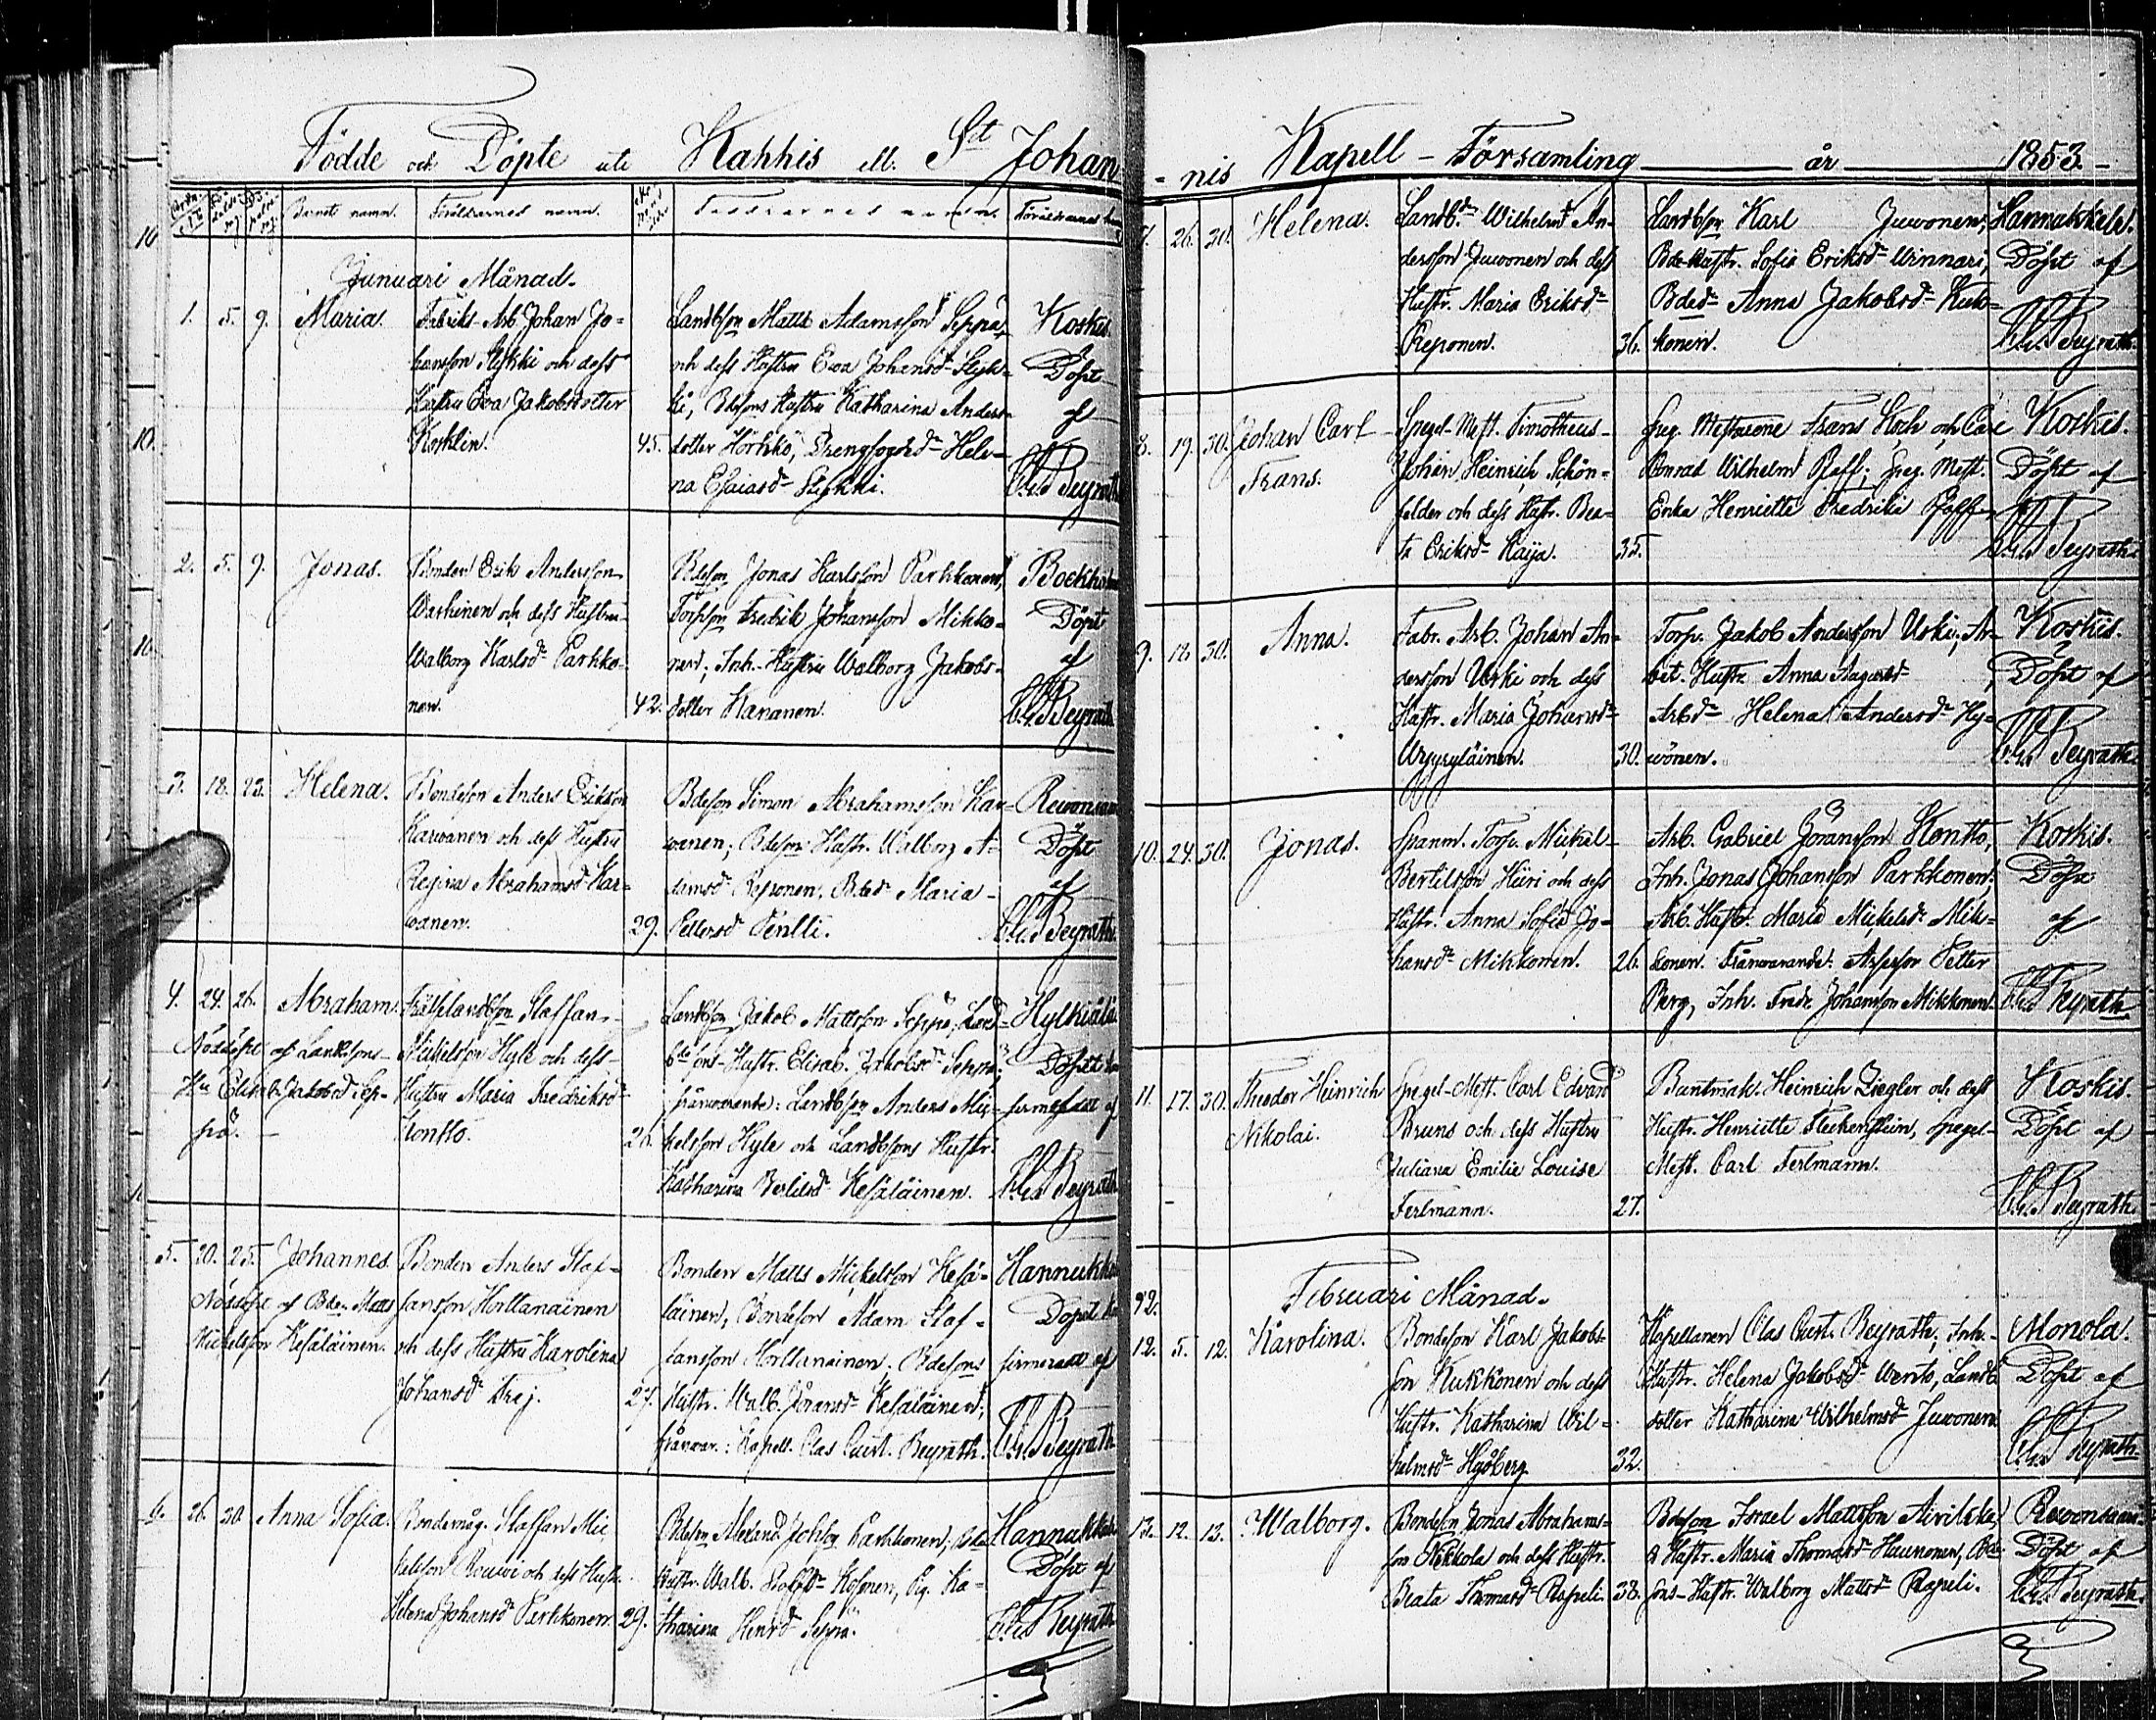 Födde och Döpte uti Kakkis ell. St Johan
Barnets namn. Föräldrarnes namn. Faddrarnes namn.
Januari Månad.
1. 5. 9. Maria.
Fabriks-Arb. Johan Jo-
hansson och dess
Hustru Eva Jakobsdotter
Koskelin. 45.
Landbson Matts Adamsson Seppä,
och dess Hustru Eva Johansd-
ki, Bdesons Hustru Katharina Anders-
dotter Hörkkö, Hele-
na Esaiasd-
Koskis.
Döpt
af
Beyrath
2. 5. 9. Jonas.
Bonden Erik Andersson
och dess Hustru
Walborg Karlsd- Parkko-
nen. 42.
Bdeson Jonas Karlsson Parkkonen,
Fredrik Johansson Mikko-
nen; Inh. Hustru Walborg Jakobs-
dotter Hananen.
Döpt
af
Beyrath
3. 18. 23. Helena.
Bondeson Anders Eriksson
Karwanen och dess Hustru
Regina Abrahamsd- Kar-
wanen. 29.
Bdeson Simon Abrahamsson Kar-
wanen; Bdeson Hustr. Walborg A-
damsd- Reponen. Bded- Maria
Pettersd- Pentti.
Döpt
af
Beyrath
4. 24. 26. Abraham.
Nöddöpt af Landbsons-
Hu Elisab. Jakobsd- Sep-
pä.
Staffan
Mickelsson Hyle och dess
Hustru Maria Fredriksd-
Kontto. 26.
Landbson Jakob Mattsson Seppä, Land-
Hustr. Elisab. Jakobsd- Seppä;
frånvarande: Landbson Anders Mic-
kelsson Hyle och Landbsons Hustr.
Katharina Bertilsd- Kesäläinen.
Döpt
af
Beyrath
5. 20. 25. Johannes.
Nöddöpt af Bden Matts
Mickelsson Kesäläinen.
Bonden Anders Staf-
fansson Horttanainen
och dess Hustru Karolina
Johansd- Frej. 27.
Bonden Matts Mickelsson Kesä-
läinen, Bondeson Adam Staf-
fansson Horttanainen. Bdesons
Hustr. Walb. Göransd- Kesäläinen;
frånvar.: Kapell. Clas Gust. Beyrath.
Hannukka
Döpt
af
Beyrath
6. 26. 30. Anna Sofia.
Bondemåg. Staffan Mic
kelsson Rouwi och dess Hustr.
Helena Johansd- Parkkonen. 29.
Bdeson Alexand. Johsson Parkkonen,
Hustr. Walb. Kosonen, Pig. Ka-
tharina Henrd- Seppä.
Döpt af
Beyrath
-nis Kapell-Församling år 1853.
7. 26. 30. Helena.
Landb. Wilhelm An-
dersson Juwonen och dess
Hustr. Maria Eriksd-
Reponen. 36.
Landbson Karl Juwonen,
Bde-Hustr. Sofia Eriksd- Winnari,
Bded- Anna Jakobsd- Kuk-
konen.
Döpt af
Beyrath.
8. 19. 30. Johan Carl
Frans.
Spegel-Mest. Timotheus
Johan Heinrich Schön-
felder och dess Hustr. Bea-
ta Eriksd- Kaija. 35.
Speg. Mestarene Frans Koch och Carl
Conrad Wilhelm Pfaff; Speg. Mest.
Enka Henriette Fredrike Pfaff.
Koskis.
Döpt af
Beyrath
9. 18. 30. Anna.
Fabr. Arb. Johan An-
dersson Uski och dess
Hustr. Maria Johansd-
30.
Torp. Jakob Andersson Uski, Ar-
bet. Hustr. Anna
Arbd- Helena Andersd- Hy-
wönen.
Koskis.
Döpt af
Beyrath.
10. 24. 30. Jonas.
Torp. Mickel
Bertilsson Hiiri och dess
Hustr. Anna Sofia Jo-
hansd- Mikkonen. 26.
Arb. Gabriel Göransson Kontto,
Inh. Jonas Johansson Parkkonen;
Arb. Hustr. Maria Mickelsd- Mik-
konen. Frånvarande: Petter
Berg, Inh. Fredr. Johansson Mikkonen.
Koskis.
Döpt
af
Beyrath
11. 17. 30. Theodor Heinrich
Nikolai.
Spegel-Mest. Carl Edvard
Bruns och dess Hustru
Juliana Emilie Louise
Ferlmann. 27.
Buntmak. Heinrich Ziegler och dess
Hustr. Henriette Fleckenstein, Spegel-
Mest. Carl Ferlmann.
Koskis.
Döpt af
Beyrath
Februari Månad.
12. 5. 12. Karolina.
Bondeson Karl Jakobs-
son Kukkonen och dess
Hustr. Katharina Wil-
helmsd- 32.
Kapellanen Clas Gust. Beyrath, Inh.
Hustr. Helena Jakobsd- Wento, Landb-
dotter Katharina Wilhelmsd- Juwonen.
Monola.
Döpt af
Beyrath
13. 12. 13. Walborg.
Bondeson Jonas Abrahams-
son Nikkola och dess Hustr.
Beata Thomasd- Rapeli. 33.
Bdeson Israel Mattsson
Hustr. Maria Thomasd- Haunonen,
sons-Hustr. Walborg Mattsd- Rapeli.
Döpt af
Beyrath